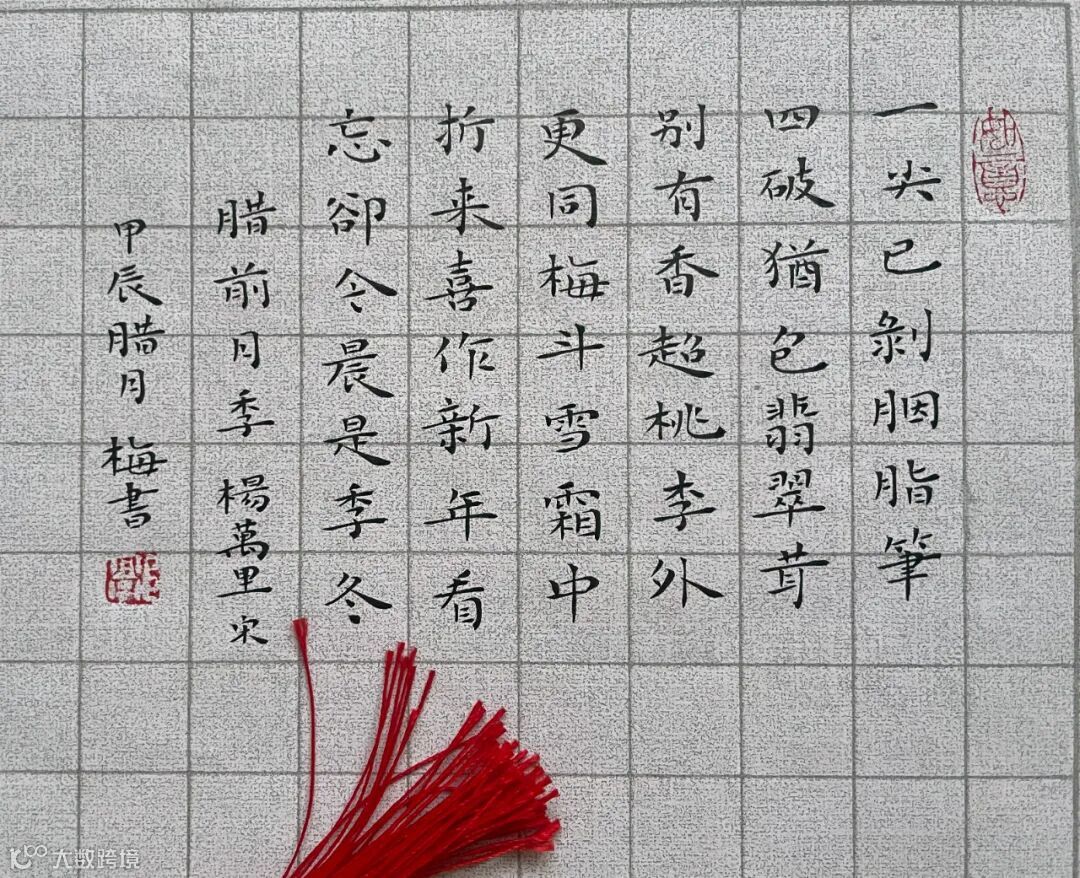 一尖已剝胭脂筆
四破猶包翡翠茸
别有香超桃李外
更同梅斗雪霜中
折来喜作新年看
忘卻今晨是季冬
腊前月季 楊萬里 宋
甲辰腊月 梅書
大数跨境